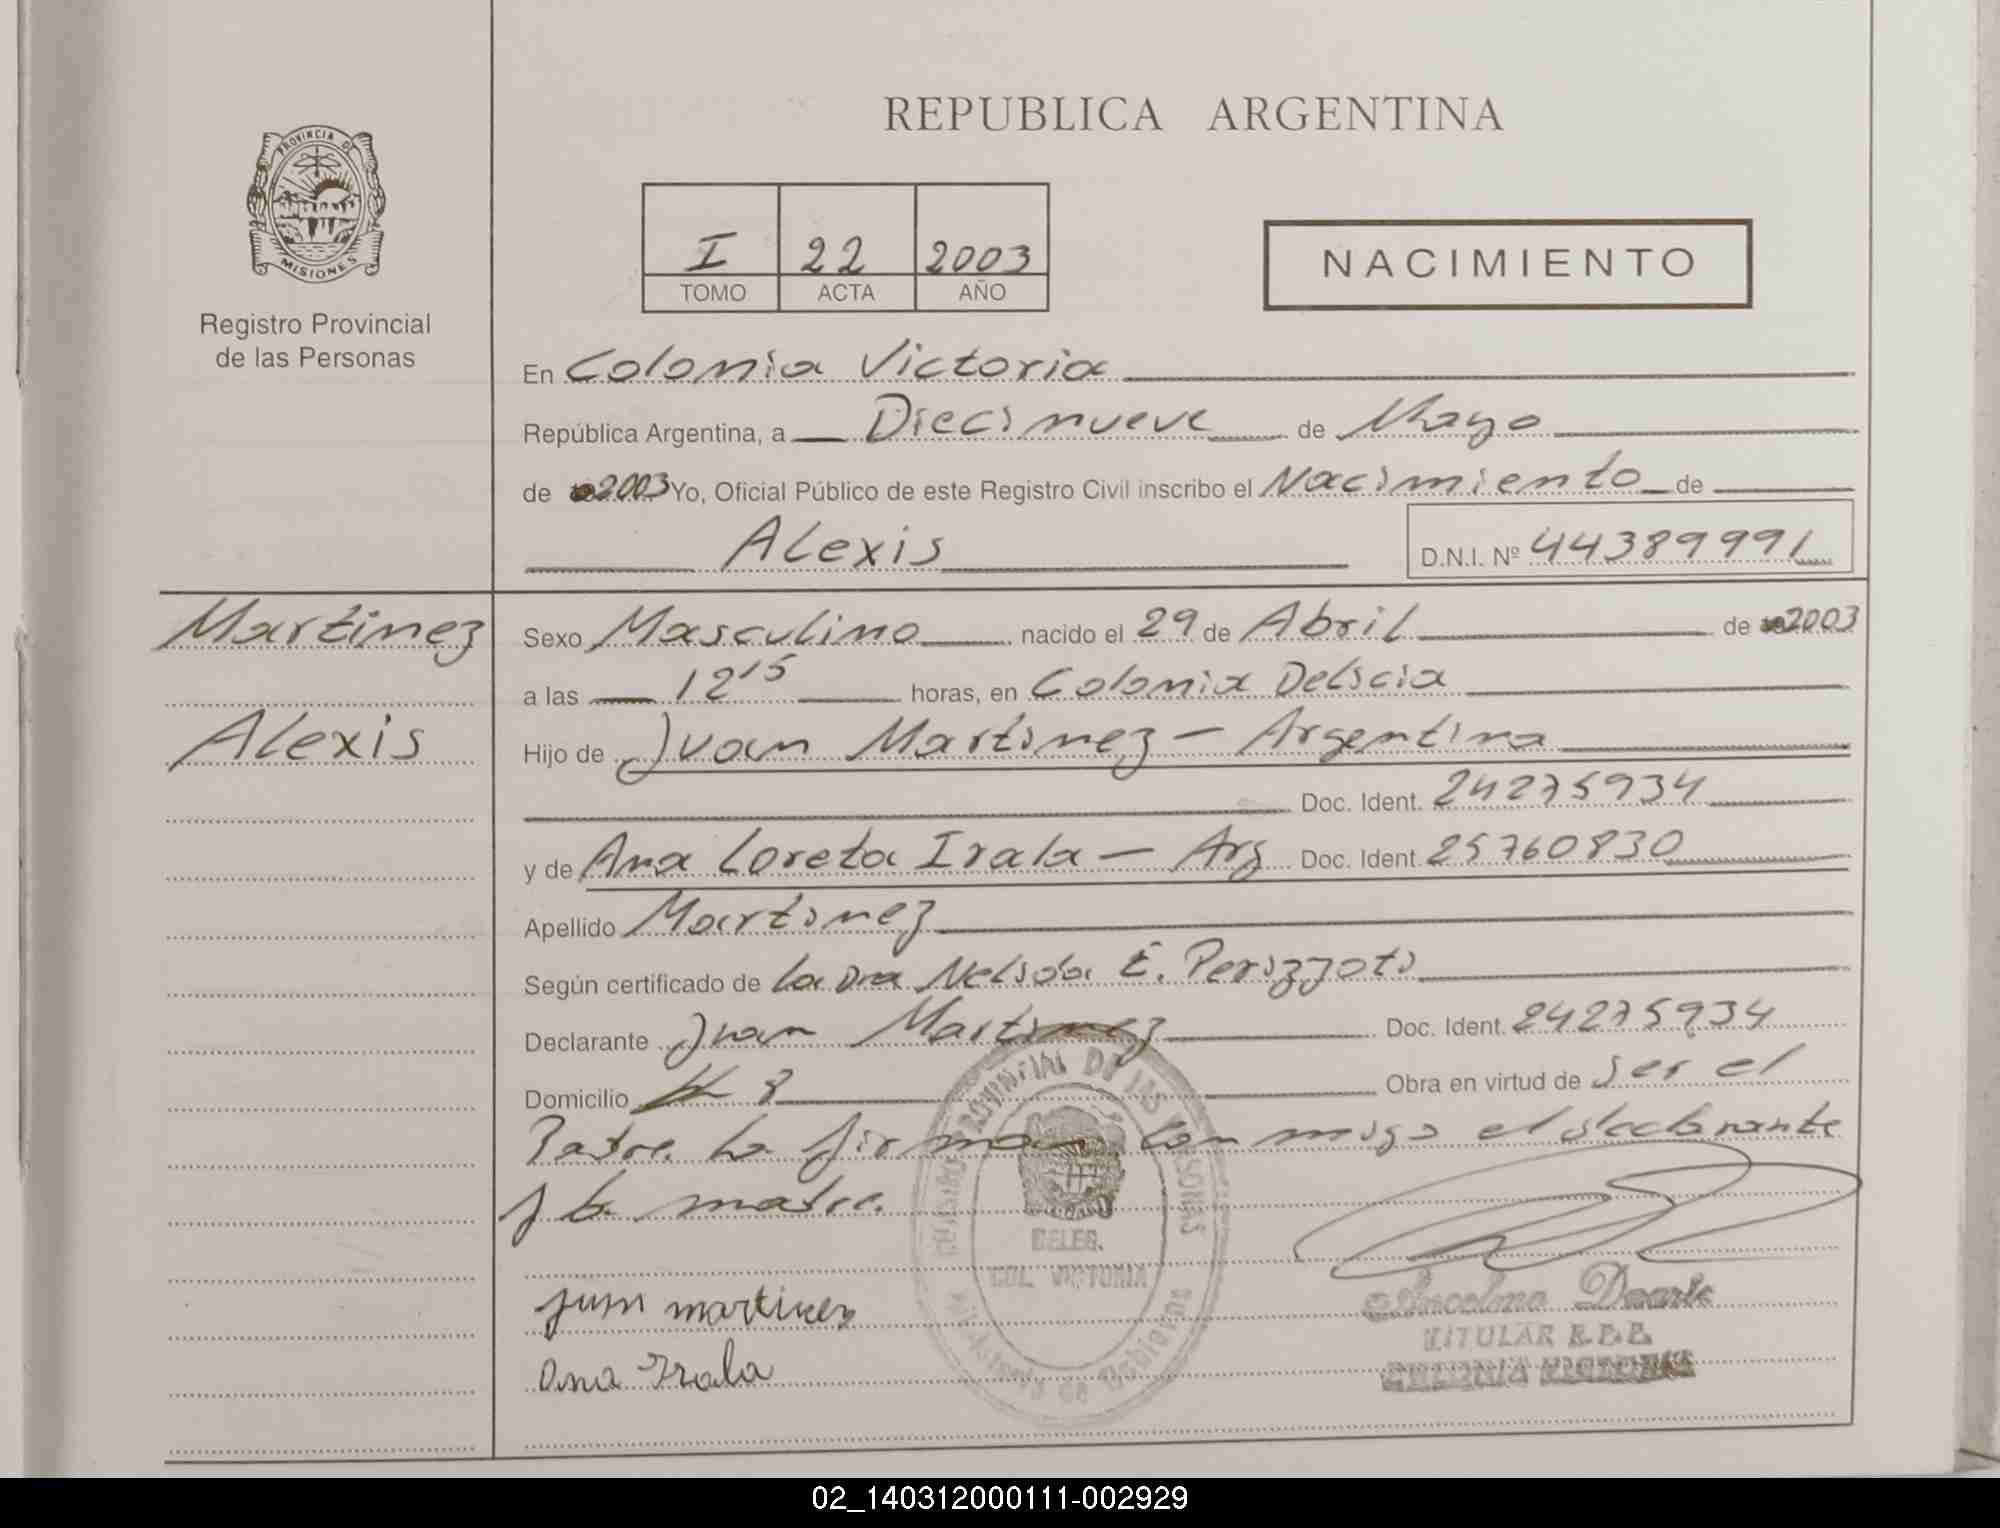 REPUBLICA ARGENTINA
PROVINCIA D
MISIONES
Registro Provincial
de las Personas
I 22 2003
TOMO ACTA AÑO
NACIMIENTO
En Colonia Victoria
República Argentina, a Diecinueve de Mayo
de 2003 Yo, Oficial Público de este Registro Civil inscribo el Nacimiento de
Alexis D.N.I. Nº 44389991
Martinez
Alexis
Sexo Masculino nacido el 29 de Abril de 2003
a las 12 15 horas, en Colonia Delicia
Hijo de Juan Martinez - Argentina
Doc. Ident. 24275934
y de Ana Loreta Irala - Arg Doc. Ident. 25760830
Apellido Martinez
Según certificado de la Dra Nelida E. Perizzoti
Declarante Juan Martinez Doc. Ident. 24275934
Domicilio 8 Obra en virtud de ser el
Padre. La firman conmigo el declarante
y la madre.
DELEG.
COL. VICTORIA
juan martinez
Ana Irala
Duarte
TITULAR R.P.P.
COLONIA VICTORIA
02_140312000111-002929